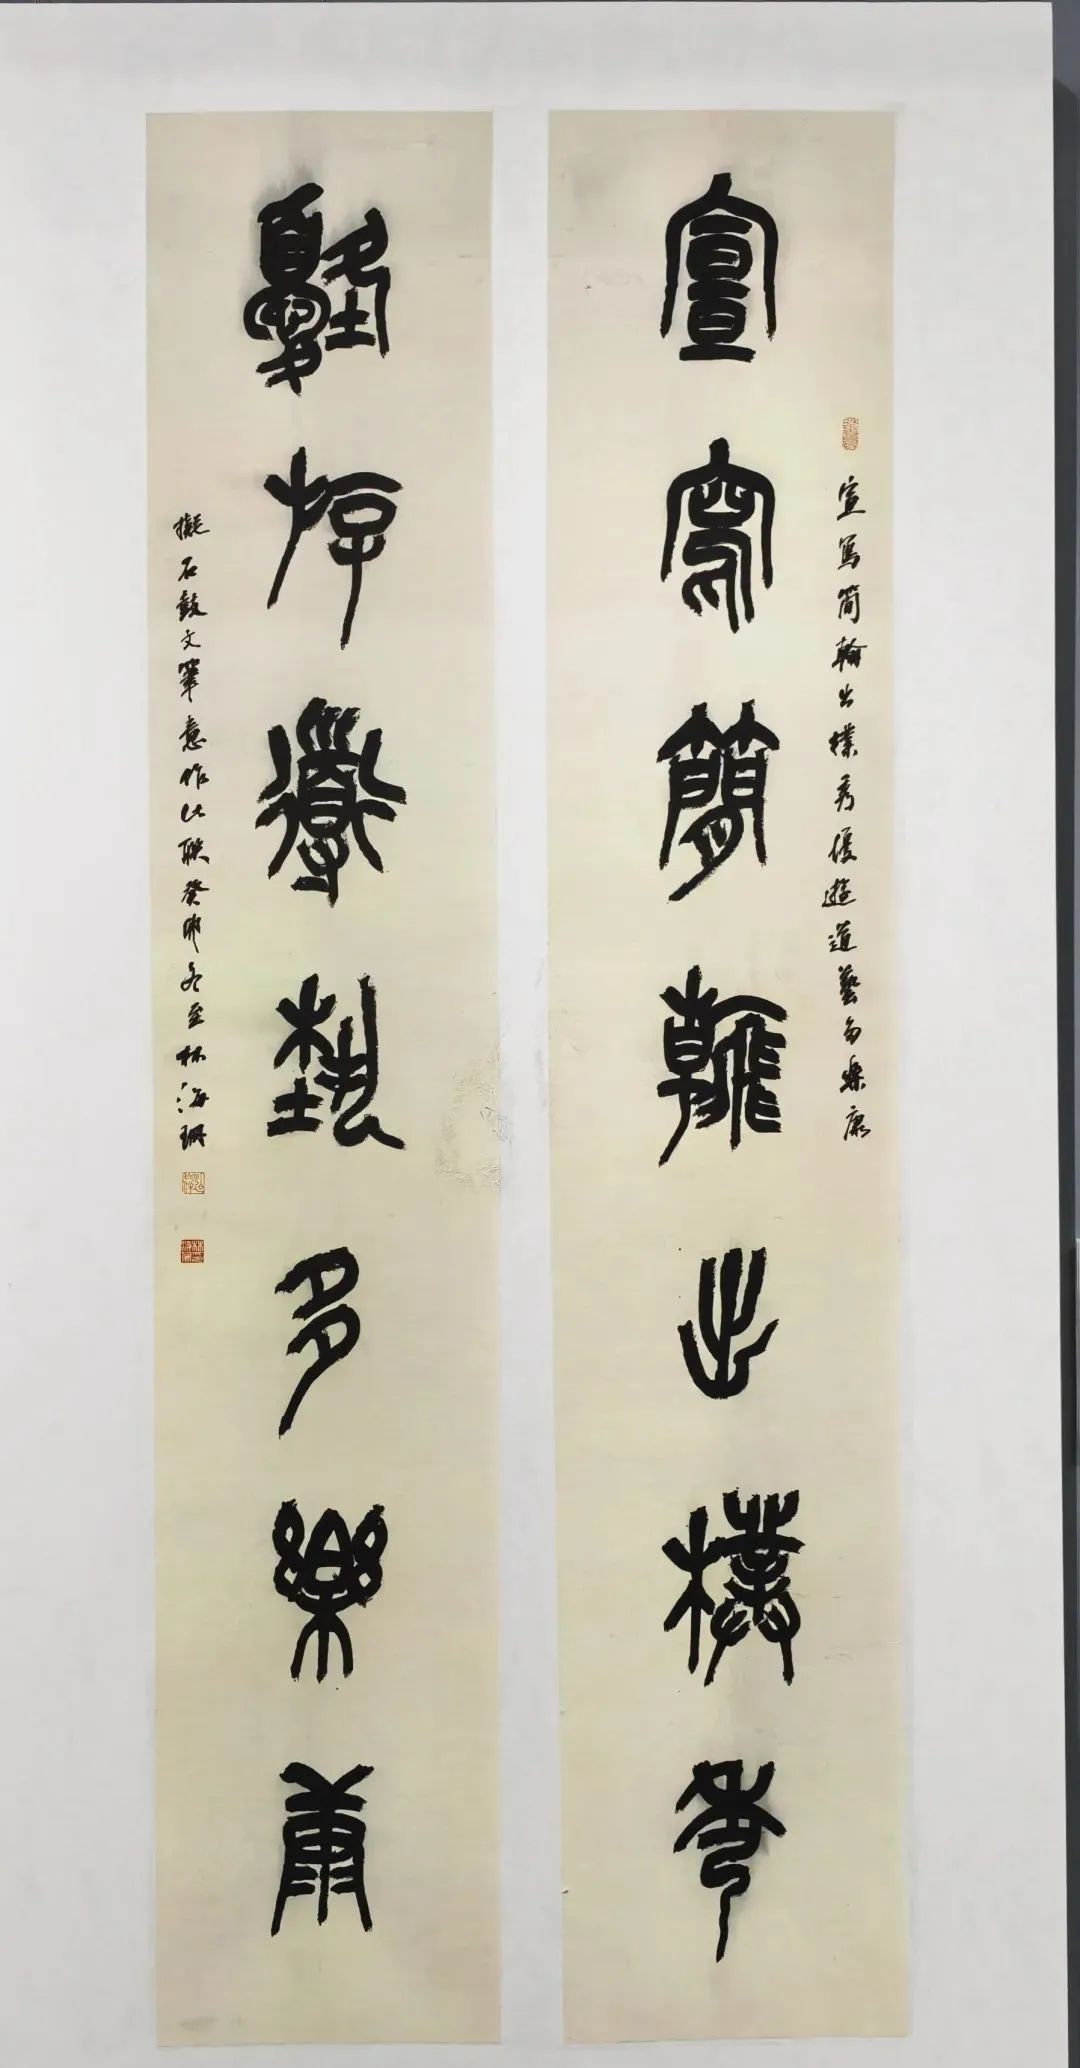 宣寫簡翰出樸秀優遊道藝多樂康
宣寫簡翰出樸秀
優游道藝多樂康
擬石鼓文筆意作此聯癸卯冬至林海珊